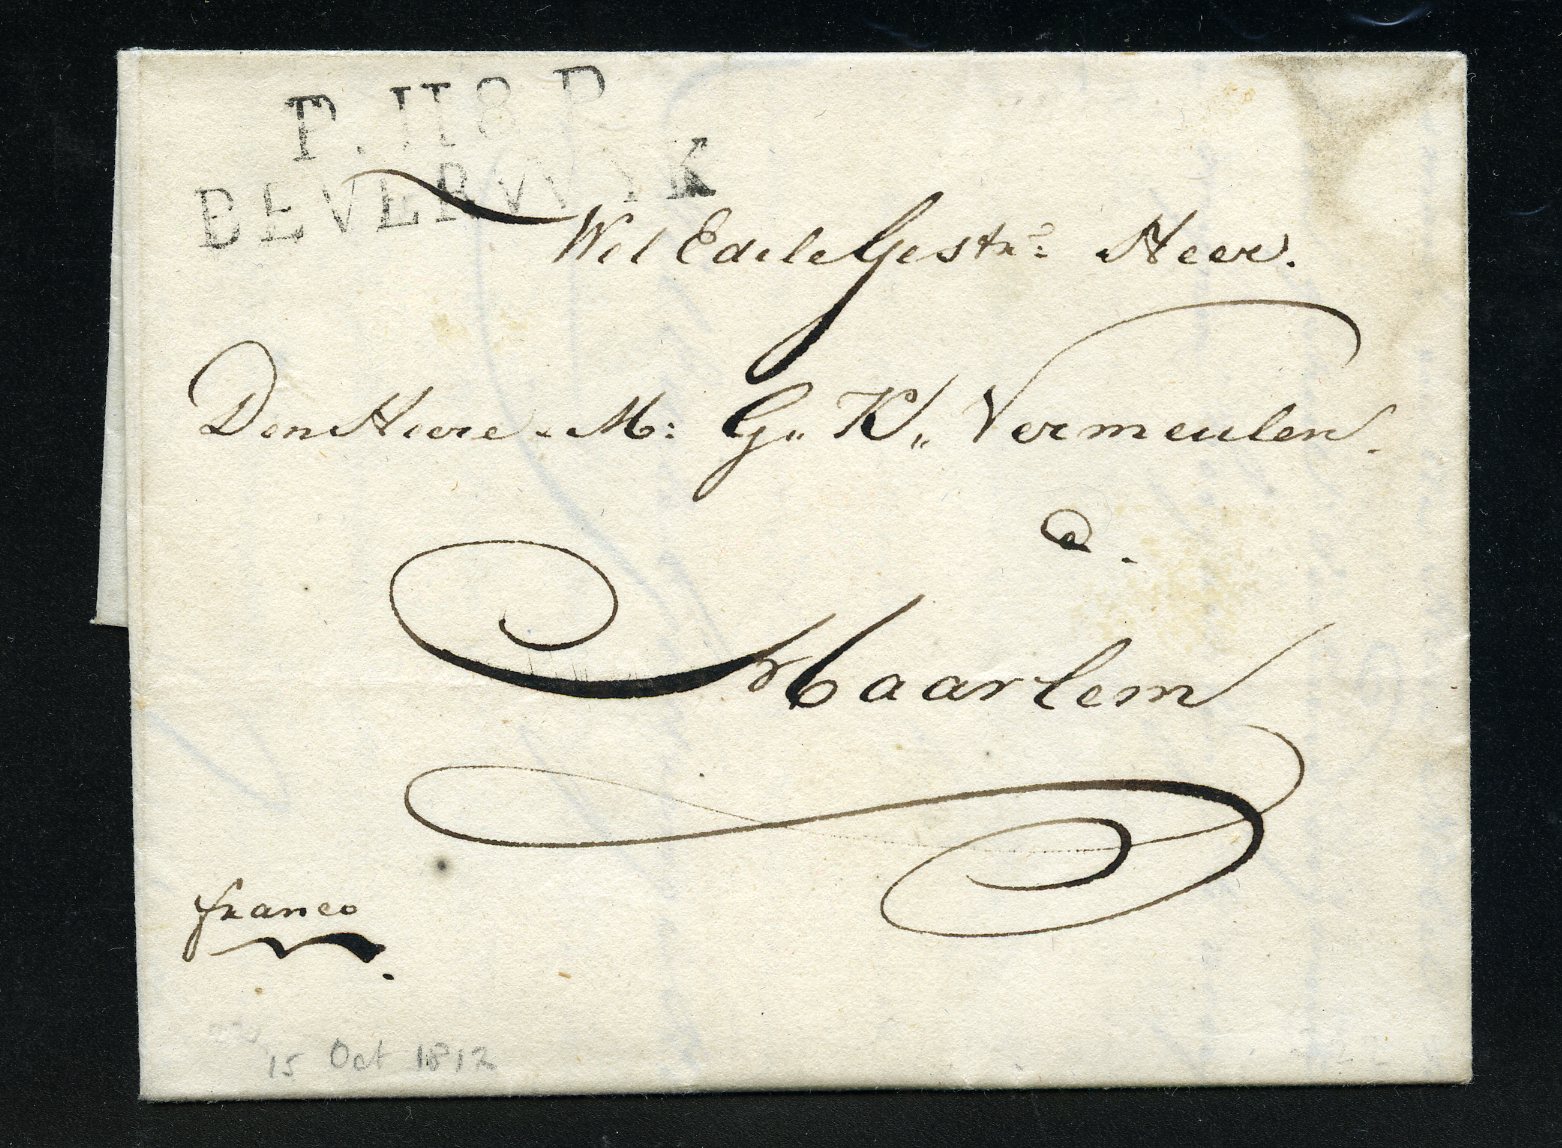 P. 118 P.
BEVERWYK
Wel Edele Gestr: Heer.
Den Heere Mr: G,, K,, Vermeulen.
a.
Haarlem
franco
15 Oct 1812